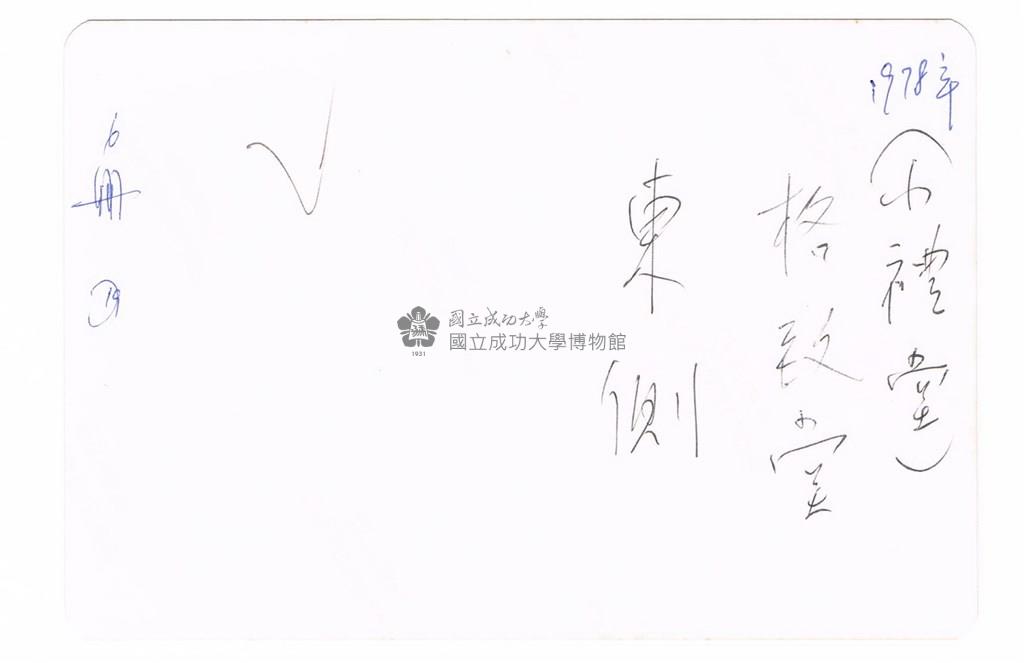 1978年
(小禮堂)
格致堂
東側
6
冊
19
國立成功大學
國立成功大學博物館
1931